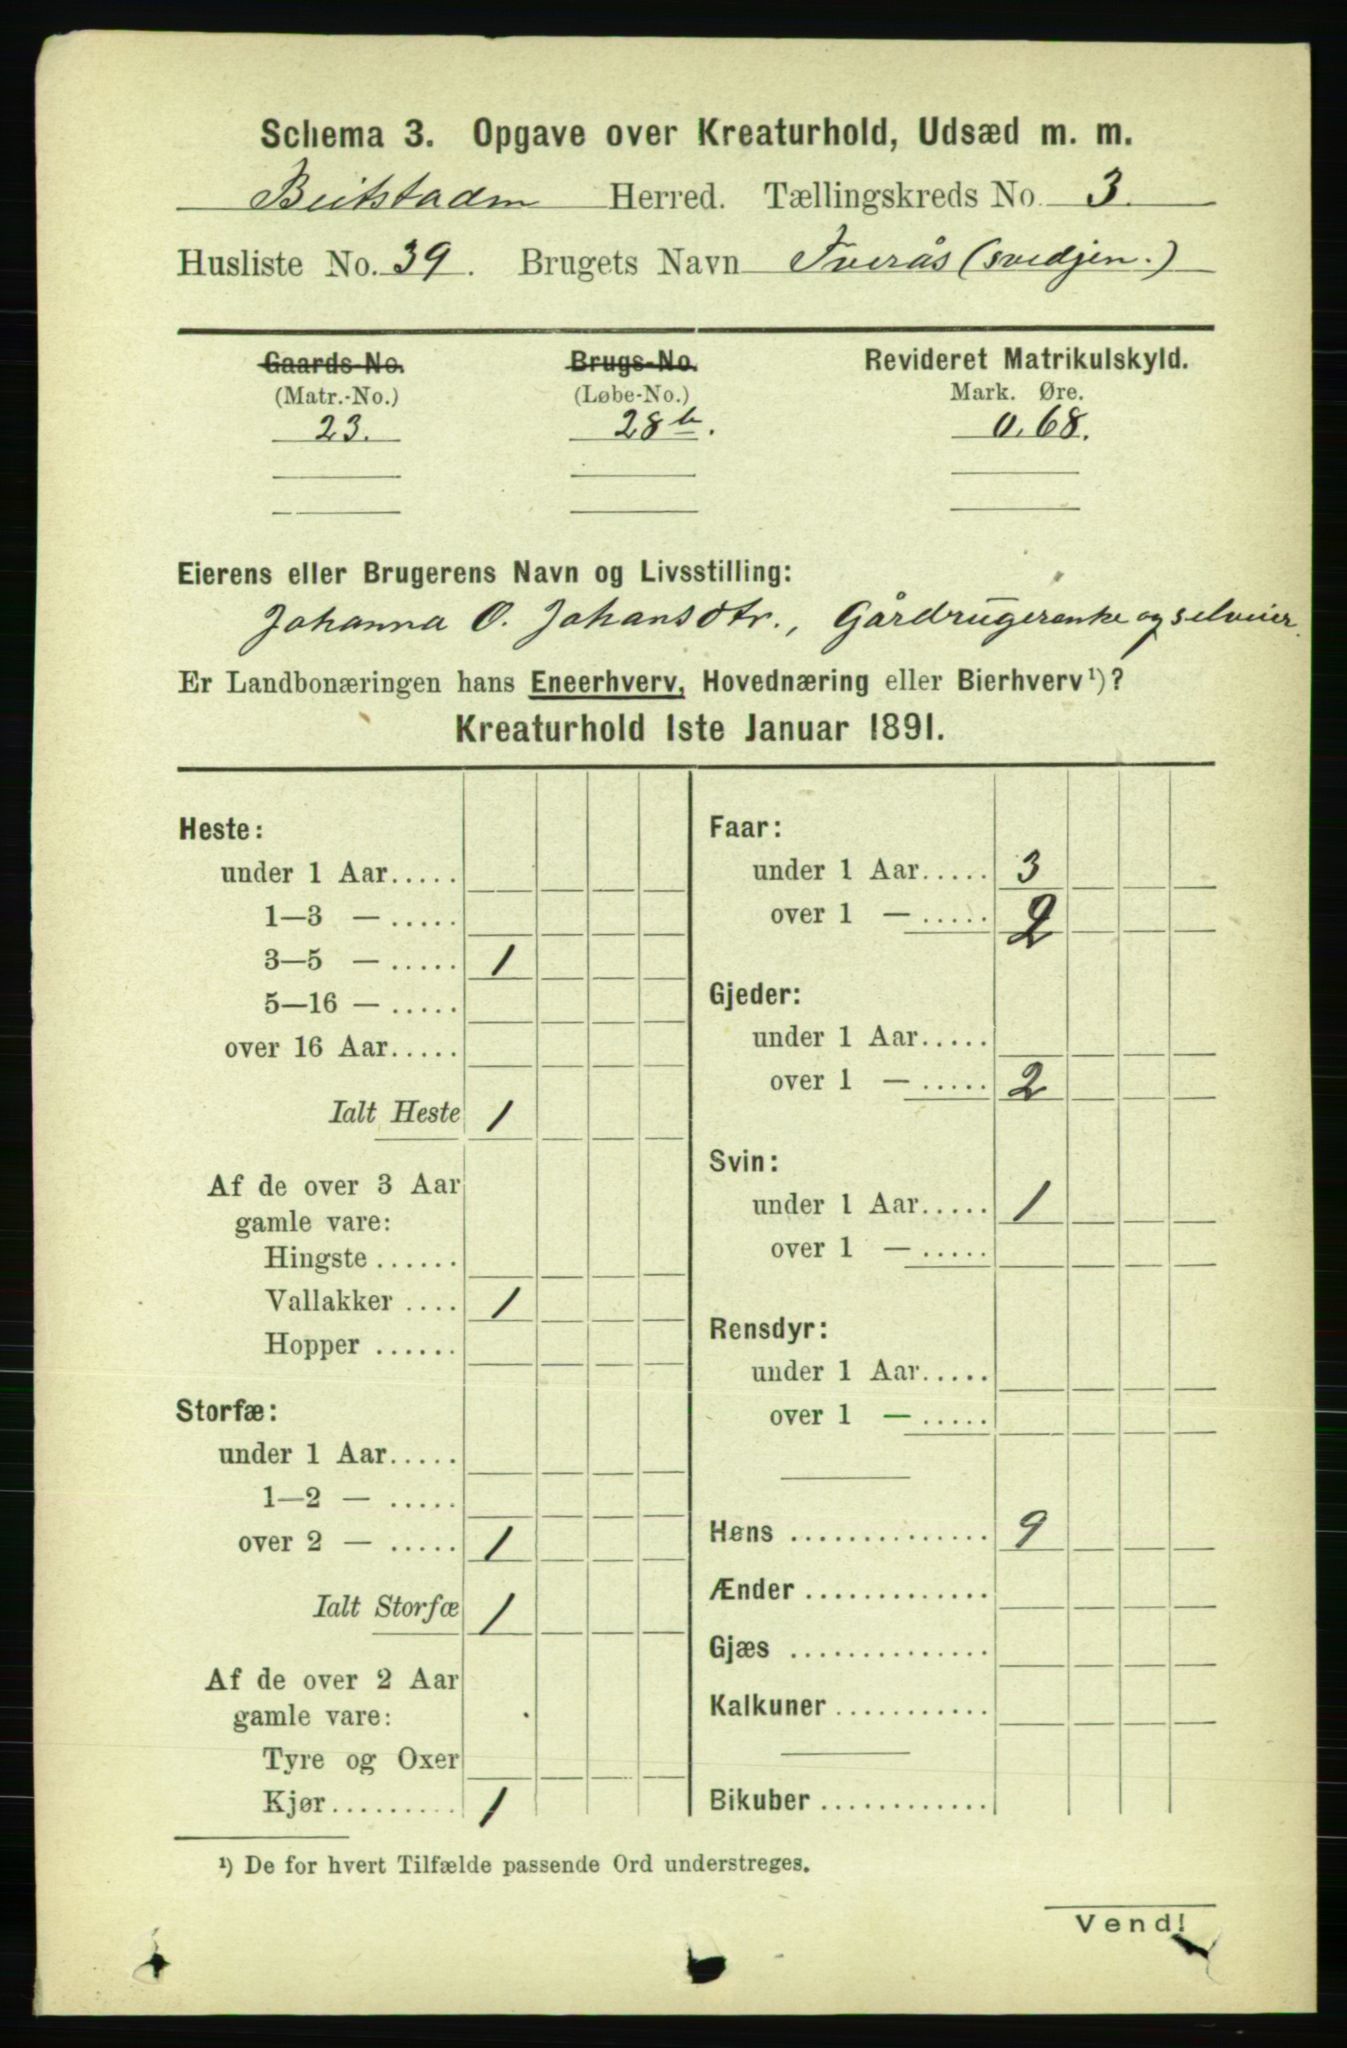 Schema 3. Opgave over Kreaturhold, Udsæd m. m.
Beitstaden Herred. Tællingskreds No. 3.
Husliste No. 39. Brugets Navn Tverås (svedjen.)
Gaards-No. Brugs-No. Revideret Matrikulskyld.
(Matr.-No.) (Løbe-No.) Mark. Øre.
23. 28 b. 0.68.
Eierens eller Brugerens Navn og Livsstilling:
Johanna O. Johansdtr., Gårdrugerenke og selveier.
Er Landbonæringen hans Eneerhverv, Hovednæring eller Bierhverv ¹)?
Kreaturhold 1ste Januar 1891.
Heste:
under 1 Aar.....
1—3 — .....
3—5 — ..... 1
5—16 — .....
over 16 Aar.....
Ialt Heste 1
Af de over 3 Aar
gamle vare:
Hingste ......
Vallakker .... 1
Hopper ......
Storfæ:
under 1 Aar.....
1—2 — .....
over 2 — ..... 1
Ialt Storfæ 1
Af de over 2 Aar
gamle vare:
Tyre og Oxer
Kjør......... 1
Faar:
under 1 Aar..... 3
over 1 — ..... 2
Gjeder:
under 1 Aar.....
over 1 — ..... 2
Svin:
under 1 Aar..... 1
over 1 — .....
Rensdyr:
under 1 Aar.....
over 1 — .....
Høns .............. 9
Ænder .............
Gjæs ..............
Kalkuner ...........
Bikuber ............
¹) De for hvert Tilfælde passende Ord understreges.
Vend!